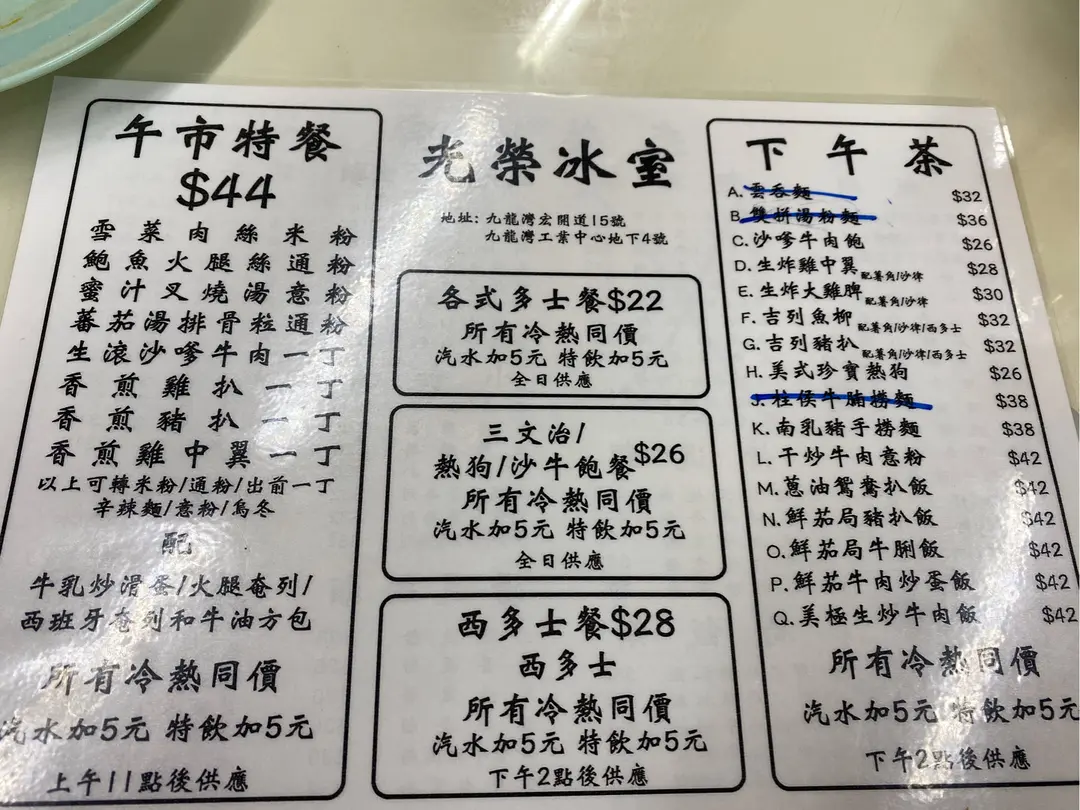 午市特餐
$44
雪菜肉絲米粉
鮑魚火腿絲通粉
蜜汁叉燒湯意粉
蕃茄湯排骨粒通粉
生滾沙嗲牛肉一丁
香煎雞扒一丁
香煎豬扒一丁
香煎雞中翼一丁
以上可轉米粉/通粉/出前一丁
辛辣麵/意粉/烏冬
配
牛乳炒滑蛋/火腿奄列/
西班牙奄列和牛油方包
所有冷熱同價
汽水加5元 特飲加5元
上午11點後供應
光榮冰室
地址: 九龍灣宏開道15號
九龍灣工業中心地下4號
各式多士餐$22
所有冷熱同價
汽水加5元 特飲加5元
全日供應
三文治/
熱狗/沙牛飽餐$26
所有冷熱同價
汽水加5元 特飲加5元
全日供應
西多士餐$28
西多士
所有冷熱同價
汽水加5元 特飲加5元
下午2點後供應
下午茶
A. 雲吞麵 $32
B. 雙拼湯粉麵 $36
C. 沙嗲牛肉飽 $26
D. 生炸雞中翼 配薯角/沙律 $28
E. 生炸大雞脾 配薯角/沙律 $30
F. 吉列魚柳 配薯角/沙律/西多士 $32
G. 吉列豬扒 配薯角/沙律/西多士 $32
H. 美式珍寶熱狗 $26
J. 柱侯牛腩撈麵 $38
K. 南乳豬手撈麵 $38
L. 干炒牛肉意粉 $42
M. 蔥油鴛鴦扒飯 $42
N. 鮮茄局豬扒飯 $42
O. 鮮茄局牛脷飯 $42
P. 鮮茄牛肉炒蛋飯 $42
Q. 美極生炒牛肉飯 $42
所有冷熱同價
汽水加5元 特飲加5元
下午2點後供應